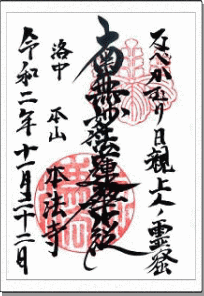 なべかむり日親上人ノ霊蹟
南無妙法蓮華経
洛中 本山 本法寺
令和二年十一月二十二日